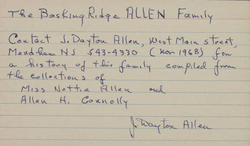 The Basking Ridge ALLEN Family
Contact J. Dayton Allen, West Main Street,
Mendham NJ 543-4330 (Nov 1968) for
a history of this family compiled from
the collections of
Miss Nettie Allen and
Allen H. Connolly
J. Dayton Allen